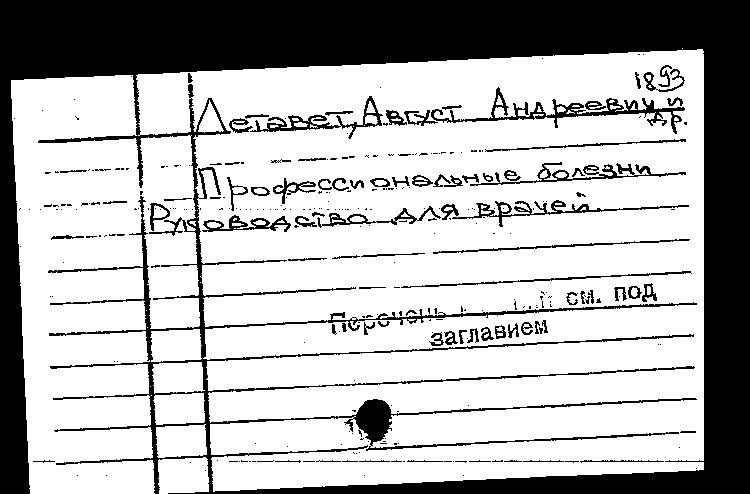 1893
Летавет, Август Андреевич и
др.
Профессиональные болезни
Руководство для врачей.
Перечень см. под
заглавием